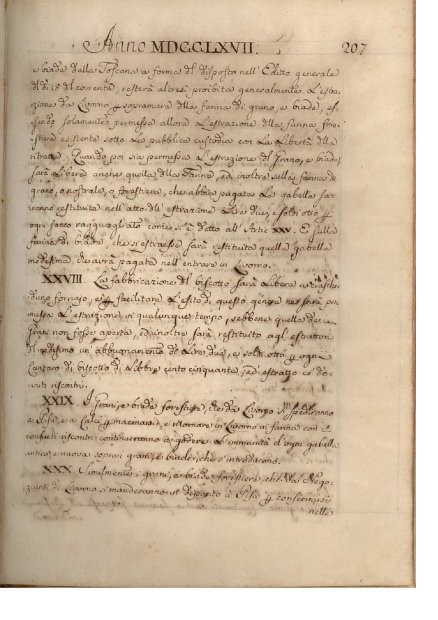 Anno MDCCLXVII. 207
e biade dalla Toscana a forma del disposto nell' Editto generale
del dì 18 del corrente, resterà altresì proibita generalmente l'estra-
zione da Livorno p sopramare della farina di grano, e biade, es-
sendo solamente permessa allora l'estrazione della farina fore-
stiera esistente sotto la pubblica custodia con la libertà della
ritratta; Quando poi sia permessa l'estrazione del Grano, e biade,
sarà libera anche quella della Farina, ed inoltre sulla farina di
grano, o nostrale, o forestiera, che abbia pagata la gabella sa-
ranno restituite nell'atto dell'estrazione Lire due, e soldi otto p
ogni sacco ragguagliato come si è detto all'Artic. XXV. E sulla
farina di biada, che si estraesse sarà restituita quella gabella
medesima, che avrà pagata nell'entrare in Livorno.
XXVIII. La fabbricazione del biscotto sarà libera a ciasche-
duno fornajo, e p facilitare l'esito di questo genere ne sarà per-
messa l'estrazione in qualunque tempo, sebbene quella de
Grani non fosse aperta, ed inoltre sarà restituito agl'estrattori
del medesimo un abbuonamento di Lire due, e soldi otto p ogni
Cantaro di biscotto di libbre cento cinquanta, ed estratto co' do-
vuti riscontri.
XXIX. I Grani, e biade forestiere, che da Livorno si spediranno
a Pisa, e a Calci p macinarsi, e ritornare in Livorno in farina con i
consueti riscontri continueranno a godere l'immunità d'ogni gabella
antica, e nuova sopra i grani, e biade, che s'introducono.
XXX. Similmente i grani, e biade forestiere, che dai Nego-
zianti di Livorno si manderanno in deposito a Pisa p conservarsi
nelle